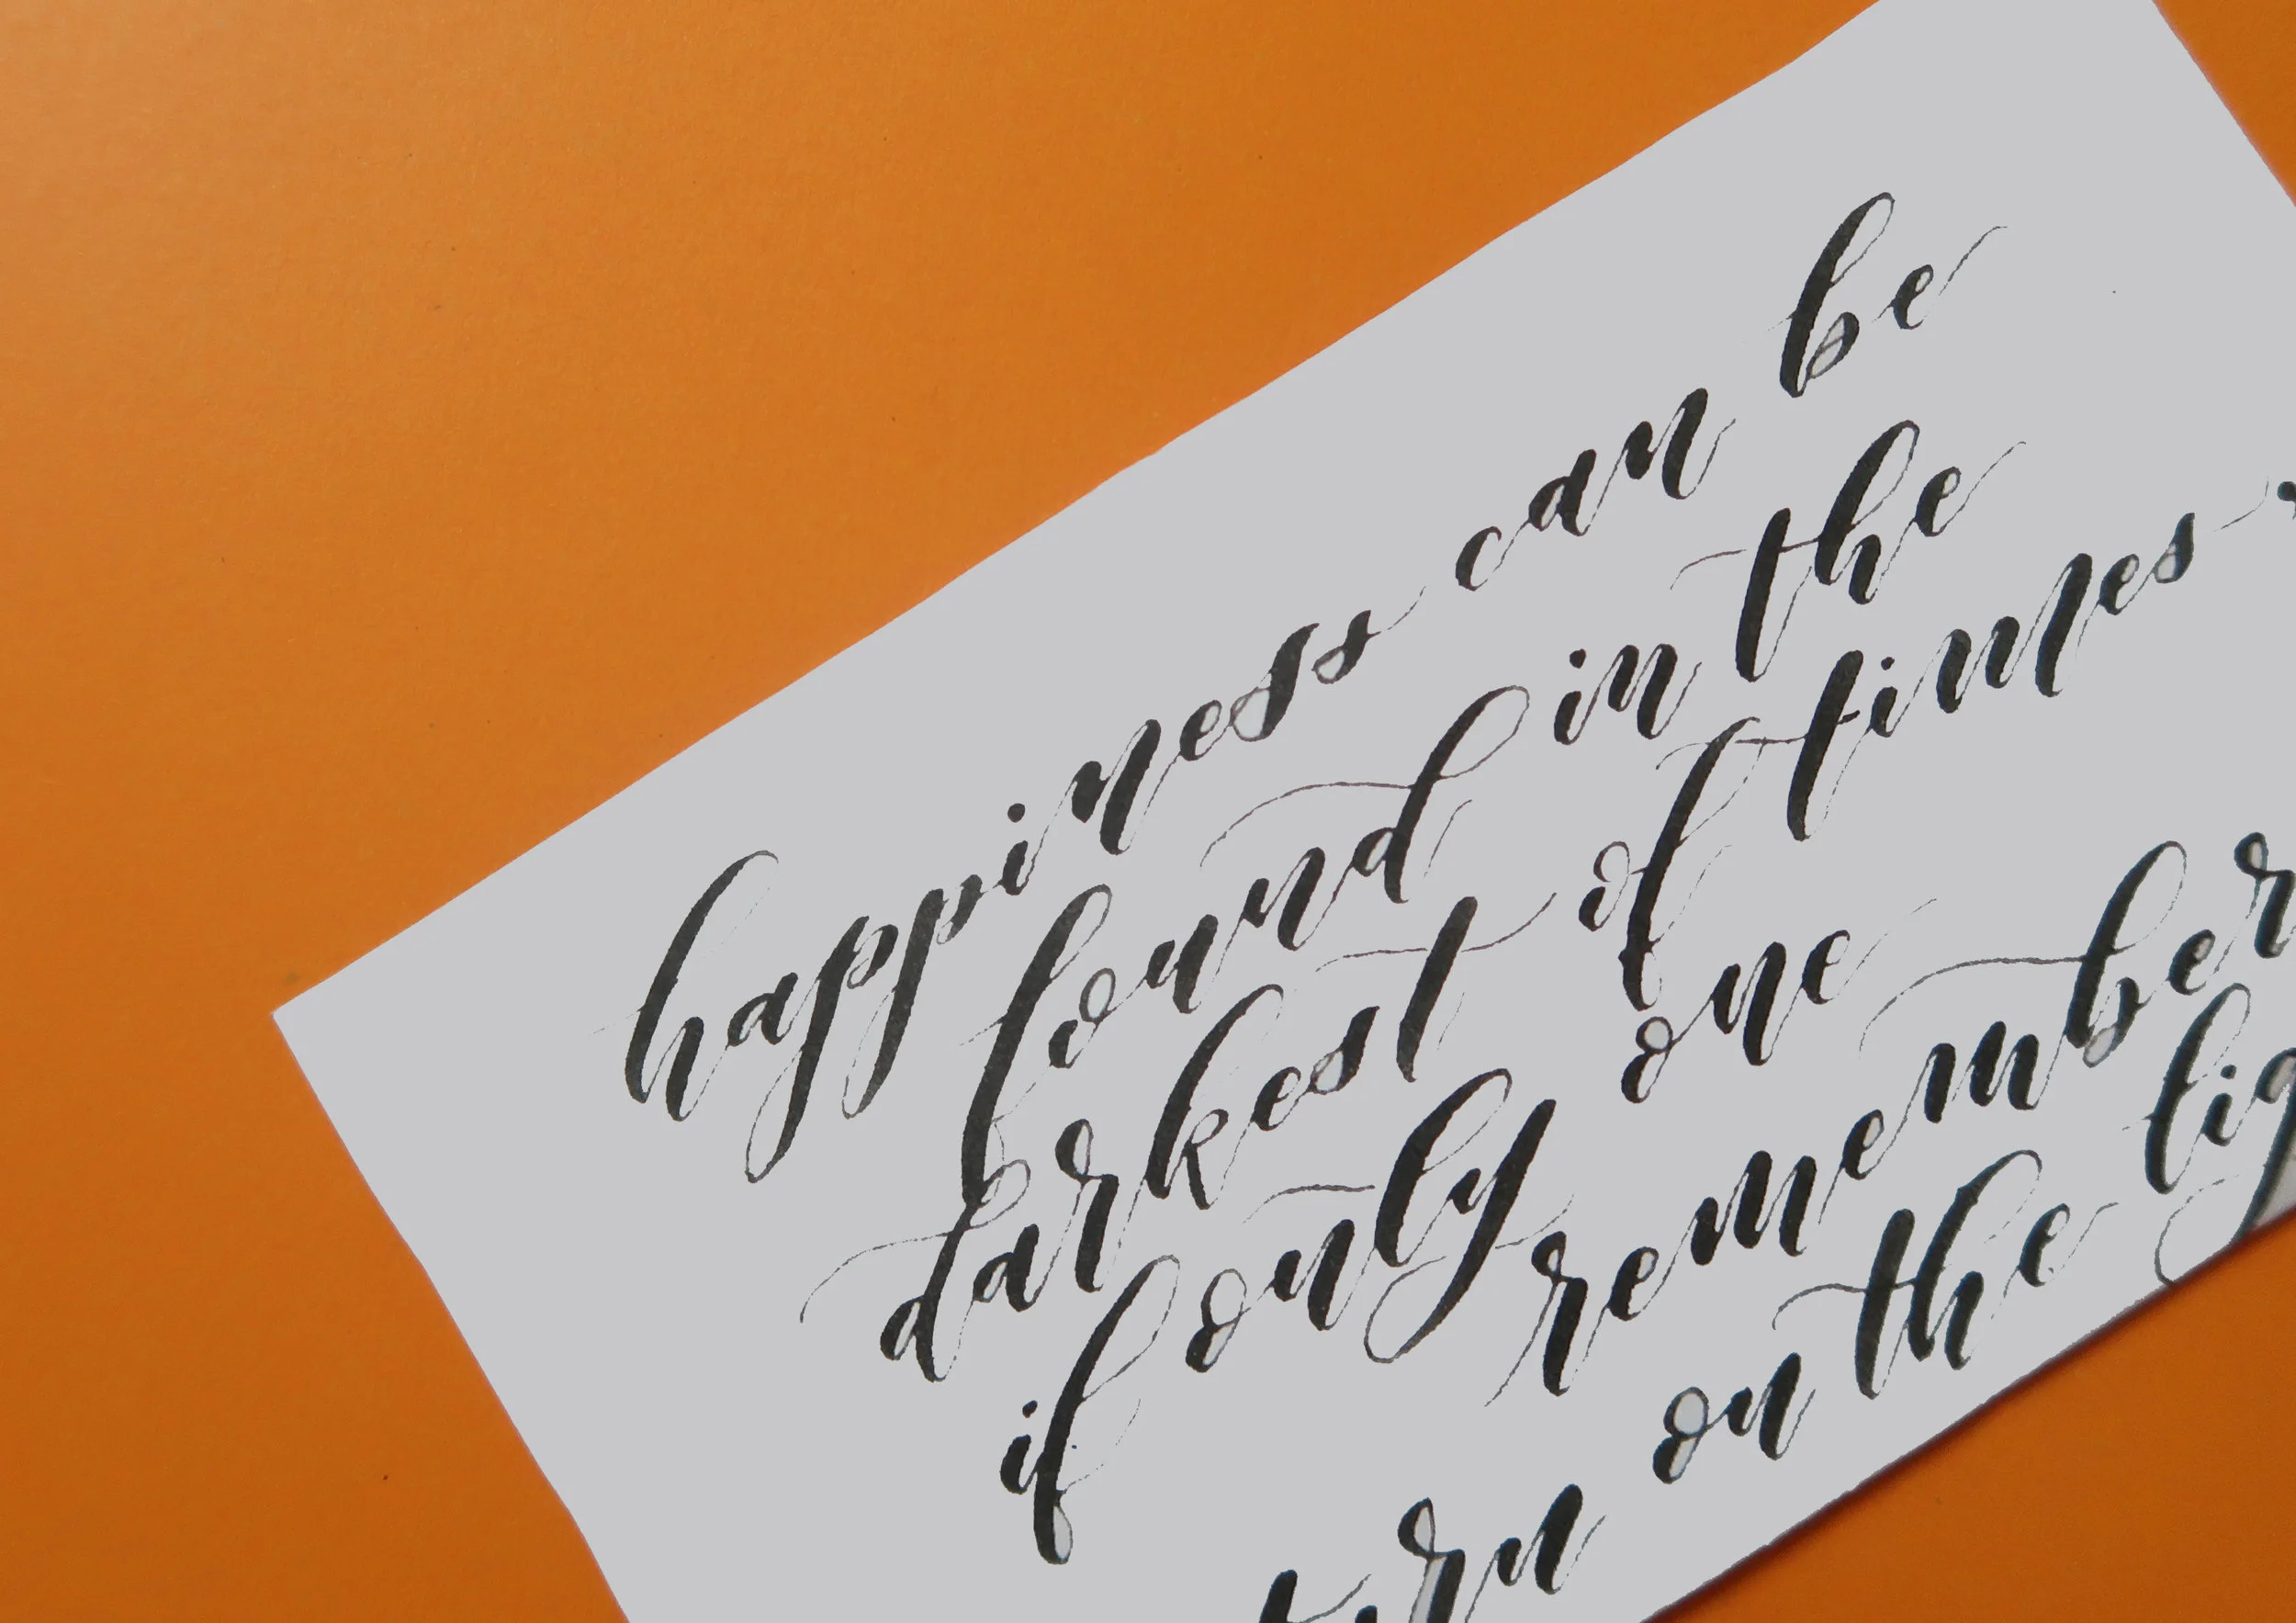 happiness can be
found in the
darkest of times,
if only one
remember
on the lig
urn